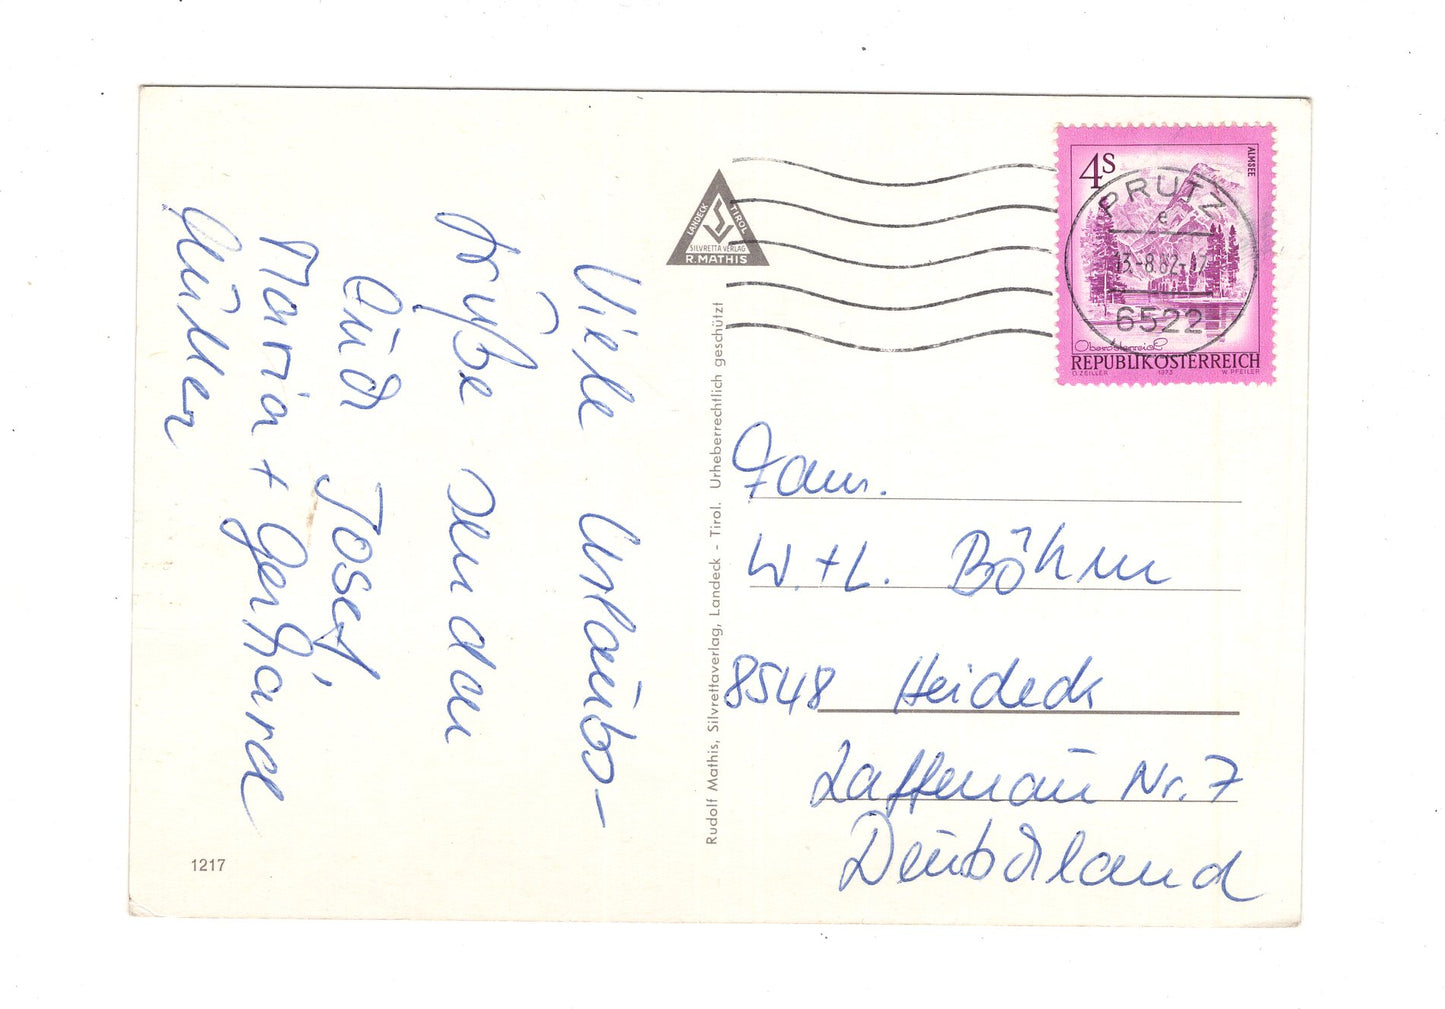 Viele Urlaubs-
grüße senden
Euch Josef,
Maria + Gerhard
Müller
1217
Rudolf Mathis, Silvrettaverlag, Landeck - Tirol. Urheberrechtlich geschützt
LANDECK
TIROL
SILVRETTA VERLAG
R. MATHIS
4S
ALMSEE
PRUTZ
e
13.-8.82-17
6522
Oberösterreich
REPUBLIK ÖSTERREICH
O. ZEILLER 1973 W. PFEILER
Fam.
W. + L. Böhm
8548 Heideck
Laffenau Nr. 7
Deutschland